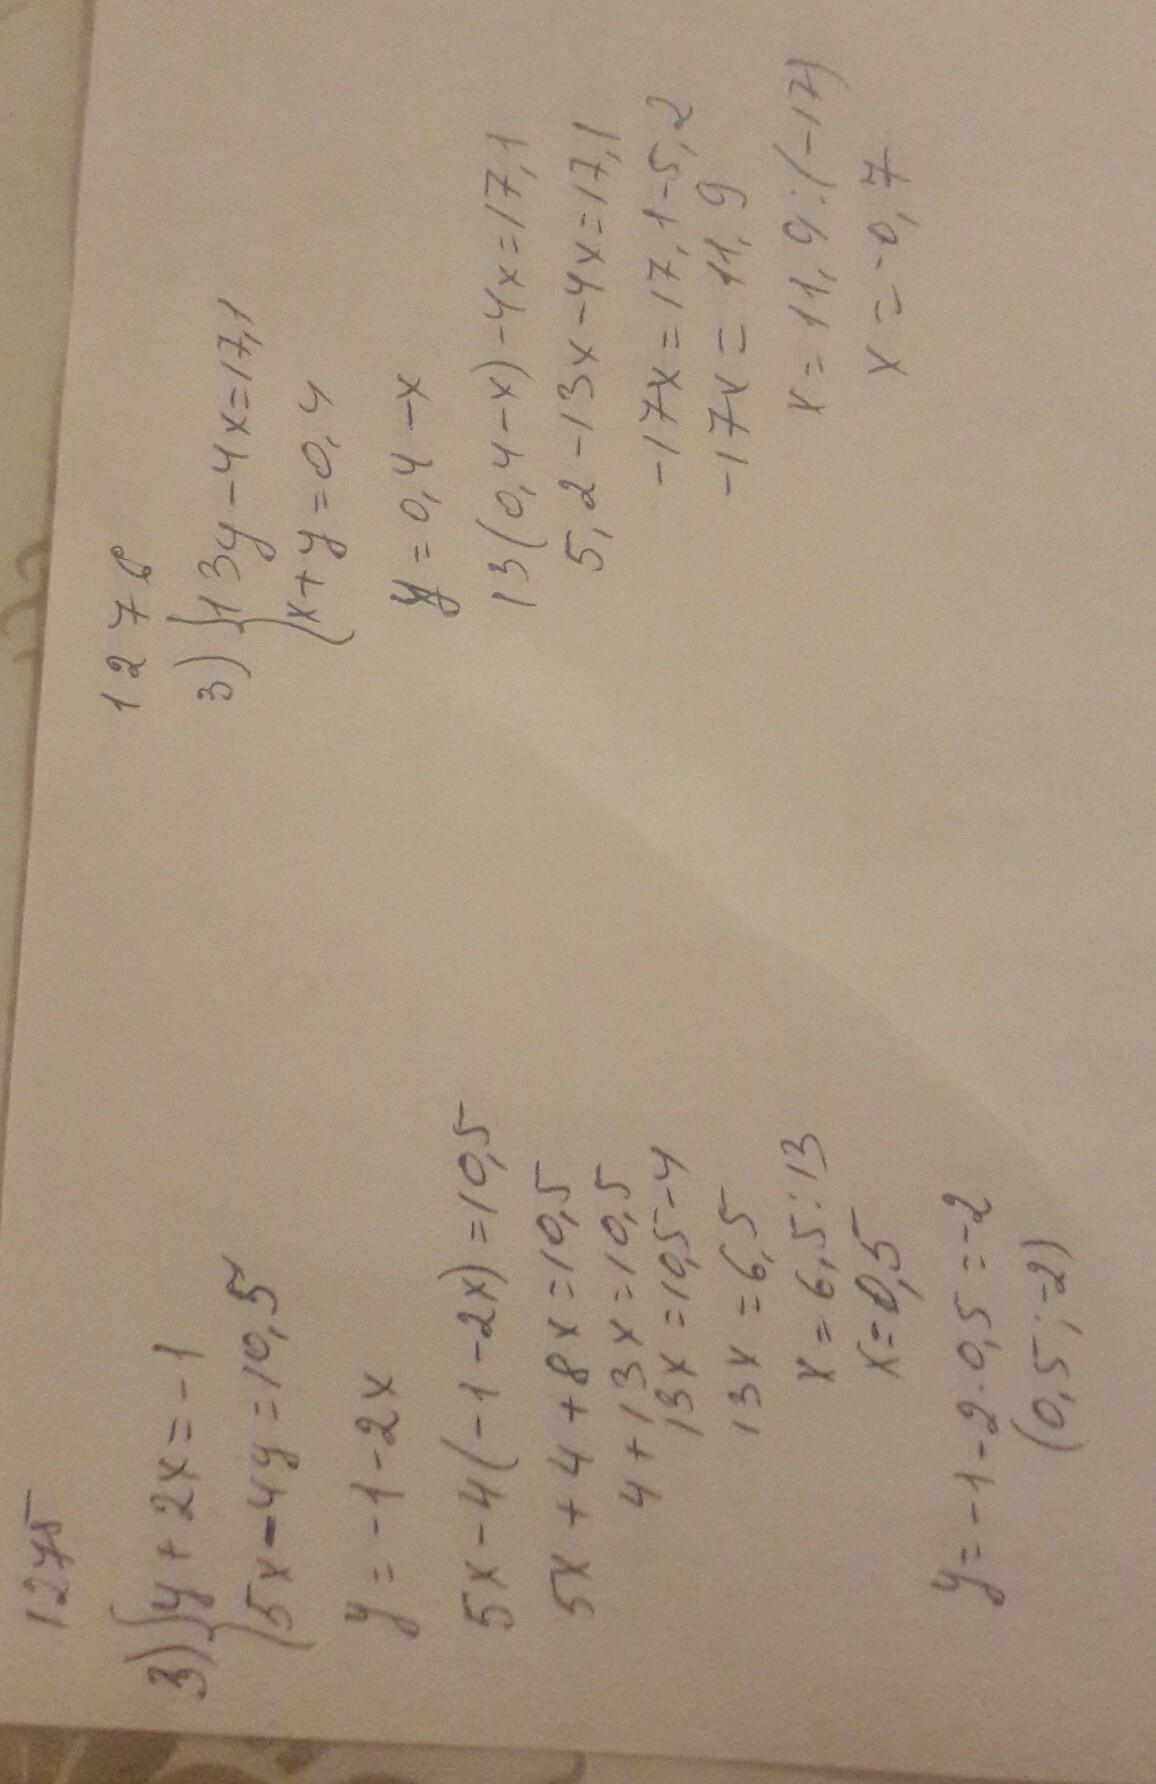 1275
3) { y + 2x = -1
5x - 4y = 10,5
y = -1 - 2x
5x - 4(-1 - 2x) = 10,5
5x + 4 + 8x = 10,5
4 + 13x = 10,5
13x = 10,5 - 4
13x = 6,5
x = 6,5 : 13
x = 0,5
y = -1 - 2 · 0,5 = -2
(0,5 ; -2)
1276
3) { 13y - 4x = 17,1
x + y = 0,4
y = 0,4 - x
13(0,4 - x) - 4x = 17,1
5,2 - 13x - 4x = 17,1
-17x = 17,1 - 5,2
-17x = 11,9
x = 11,9 : (-17)
x = -0,7